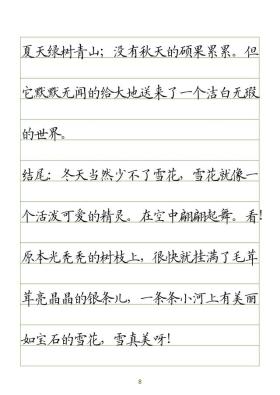 夏天绿树青山；没有秋天的硕果累累。但
它默默无闻的给大地送来了一个洁白无瑕
的世界。
结尾：冬天当然少不了雪花，雪花就像一
个活泼可爱的精灵。在空中翩翩起舞。看！
原本光秃秃的树枝上，很快就挂满了毛茸
茸亮晶晶的银条儿，一条条小河上有美丽
如宝石的雪花，雪真美呀！
8